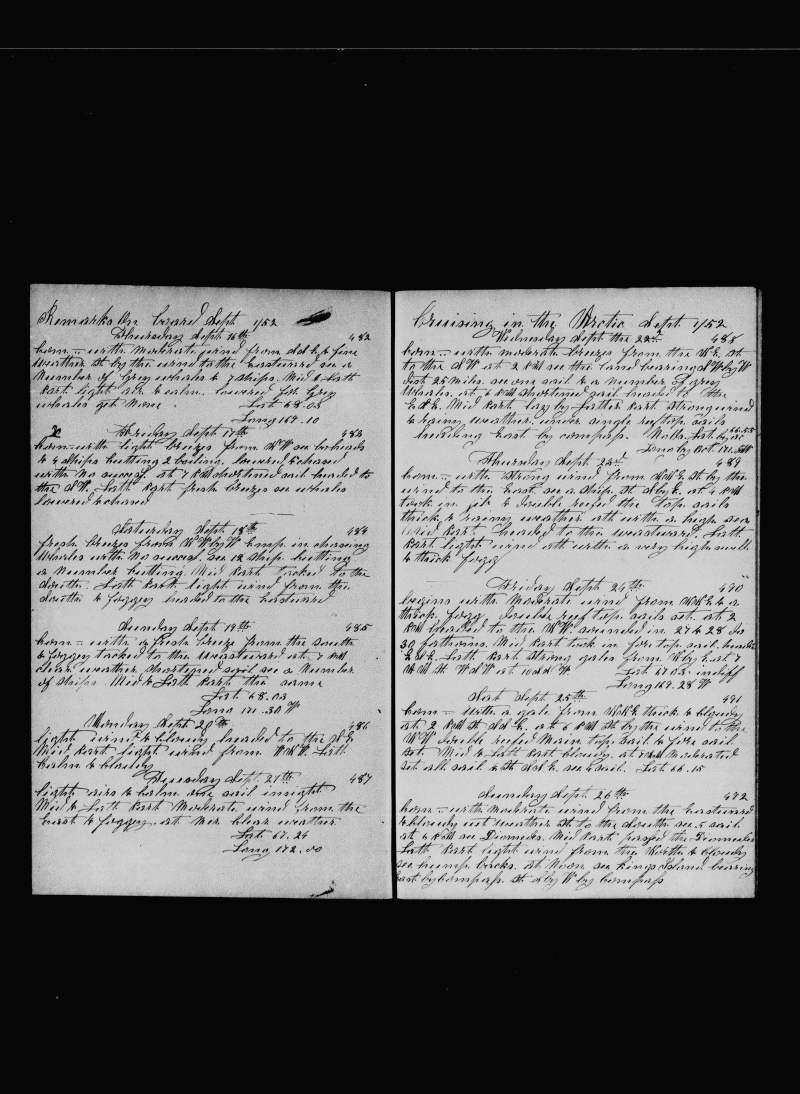 Remarks On board Sept 1/52
Thursday Sept 16th 482
Com – with moderate wind from S.S.E. & fine
weather St by the wind to the Eastward see a
Number of Grey whales & 7 ships. Mid & Lath
Part light air & calm. lowered for Grey
whales got None Lat 68.03
Long 169.10
Friday Sept 17th 483
Com with light breezes from S.W see bowheads
& 4 ships cutting 2 boiling lowered & chased
with No sucess. at 7 PM shortened sail headed to
the S.W. Lath Part fresh breezes see whales
lowered & chased
Saturday Sept 18th 484
fresh breezes from W.W by W Emp. in chasing
Whales with No sucess. see 12 ships cutting
a Number cutting. Mid Part tacked to the
South. Lath Part light wind from the
South & foggy headed to the Eastward
Sunday Sept 19th 485
Com – with a fresh breeze from the South
& foggy tacked to the Westward at 7 PM
clear weather shortened sail see a Number
of ships. Mid & Lath Part the same
Lat 68.03
Long 171.30 W
Monday Sept 20th 486
light wind & cloudy headed to the S.E.
Mid Part light wind from W.N.W. Lath
Calm & cloudy
Tuesday Sept 21th 487
light airs & calm one sail in sight
Mid & Lath Part Moderate wind from the
East & foggy at Mer clear weather
Lat 67.24
Long 172.00
Cruising in the Arctic Sept 1/52
Wednesday Sept the 22nd 488
Com – with moderate breezes from the N.E. St
to the S.W at 2 PM see the land bearing S W by W
Dist 25 miles. see one sail & a number of grey
Whales. at 6 PM shortened sail headed to the
E.S.E. Mid Part lay by Latter Part strong wind
& rainy weather, under single reef top sails
heading East by compass. Lat by ac 66.55
Long by Act. 171.
Thursday Sept 23d 489
Com – with strong wind from N.N.E. St by the
wind to the East. see a ship. St S by E. at 4 PM
took in jib & double reefed the top sails
thick & rainy weather att with a high sea
Mid Part headed to the westward. Lath
Part light wind att with a very high swell
& thick fogg
Friday Sept 24th 490
begins with Moderate wind from N.N.E. & a
thick fogg double reef top sails set. at 2
PM headed to the W.W. sounded in 27 & 28 &
30 fathoms. Mid Part took in fore top sail. headed
E.S.E. Lath Part strong gales from N by E. at 7
AM St W S W at 10 S S W Lat 67.03. indiff
Long 169.28 W
Sat Sept 25th 491
Com – with a gale from N.N.E thick & cloudy
at 2 PM St S.S.E. at 6 PM St by the wind to the
W.W. double reefed Main top sail & fore sail
set Mid & Lath Part cloudy at 7 AM Moderated
set all sail & St S.S.E. see 1 sail. Lat 66.15
Sunday Sept 26th 492
Com – with moderate wind from the Eastward
& cloudy wet weather St to the South see 5 sail
at 6 PM see Diomedes. Mid Part passed the Diomedes
Lath Part light wind from the North & cloudy
see hump backs. At Noon see Kings Island bearing
East by Compass. St S by W by Compass